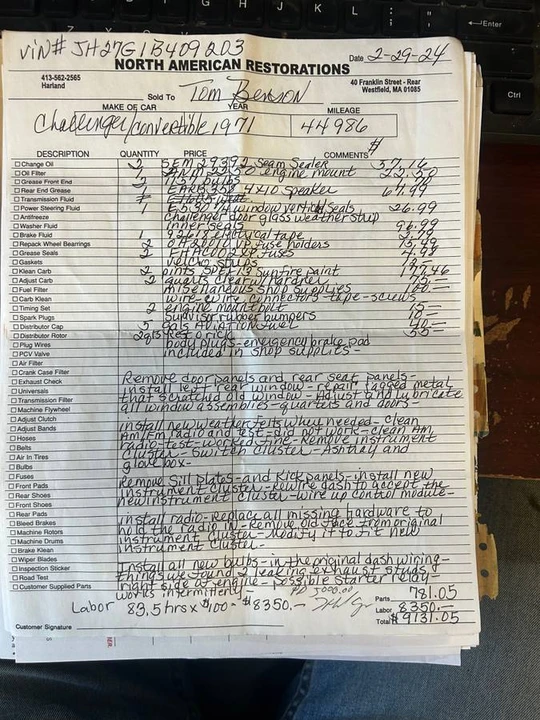 VIN# JH27G1B409203
Date 2-29-24
NORTH AMERICAN RESTORATIONS
413-562-2565
Harland
40 Franklin Street - Rear
Westfield, MA 01085
Sold To Tom Benson
MAKE OF CAR YEAR MILEAGE
Challenger/convertible 1971 44986
DESCRIPTION QUANTITY PRICE COMMENTS $
Change Oil 2 SEM 29392 Seam Sealer 37.16
Oil Filter 2 engine mount 22.50
Grease Front End
Rear End Grease 1 4x10 Speaker 67.99
Transmission Fluid
Power Steering Fluid 1 window vertical Seals 26.99
Antifreeze Challenger door glass weatherstrip
Washer Fluid inner seals 96.99
Brake Fluid 1 electrical tape
Repack Wheel Bearings 2 fuse holders
Grease Seals 2 fuses 4.98
Gaskets velcro strips
Klean Carb 2 pints Sunfire paint 177.46
Adjust Carb 2 quarts clear w/Hardner
Fuel Filter miscellaneous shop supplies 100.—
Carb Klean wire-wire connectors-tape-screws
Timing Set 2 engine mount bolt 15—
Spark Plugs Sunvisor rubber bumpers 10—
Distributor Cap 5 gals Aviation fuel 40—
Distributor Rotor 55—
Plug Wires body plugs-emergency brake pad
PCV Valve included in shop supplies-
Air Filter
Crank Case Filter
Exhaust Check Remove door panels and rear seat panels-
Universals install left rear window-repair jagged metal
Transmission Filter that scratched old window-Adjust and lubricate
Machine Flywheel all window assemblies-quarters and doors-
Adjust Clutch
Adjust Bands Install new weatherfelts why needed-clean
Hoses Am/Fm radio and test-did not work-clean AM
Belts radio-test-worked fine-Remove instrument
Air In Tires cluster-Switch cluster-Ashtray and
Bulbs glove box-
Fuses
Front Pads Remove Sill plates-and Kick panels-install new
Rear Shoes instrument cluster-Rewire dash to accept the
Front Shoes new instrument cluster-wire up control module-
Rear Pads
Bleed Brakes Install radio-Replace all missing hardware to
Machine Rotors hold the radio IN-Remove old face from original
Machine Drums instrument cluster-Modify it to fit new
Brake Klean instrument cluster-
Wiper Blades
Inspection Sticker Install all new bulbs-in the original dash wiring-
Road Test things we found 2 leaking exhaust studs
Customer Supplied Parts right side of engine-possible starter relay-
works intermittently-
Parts 781.05
Labor 83.5 hrs x $100- $8350.—
Labor 8350.—
Total $9131.05
Customer Signature